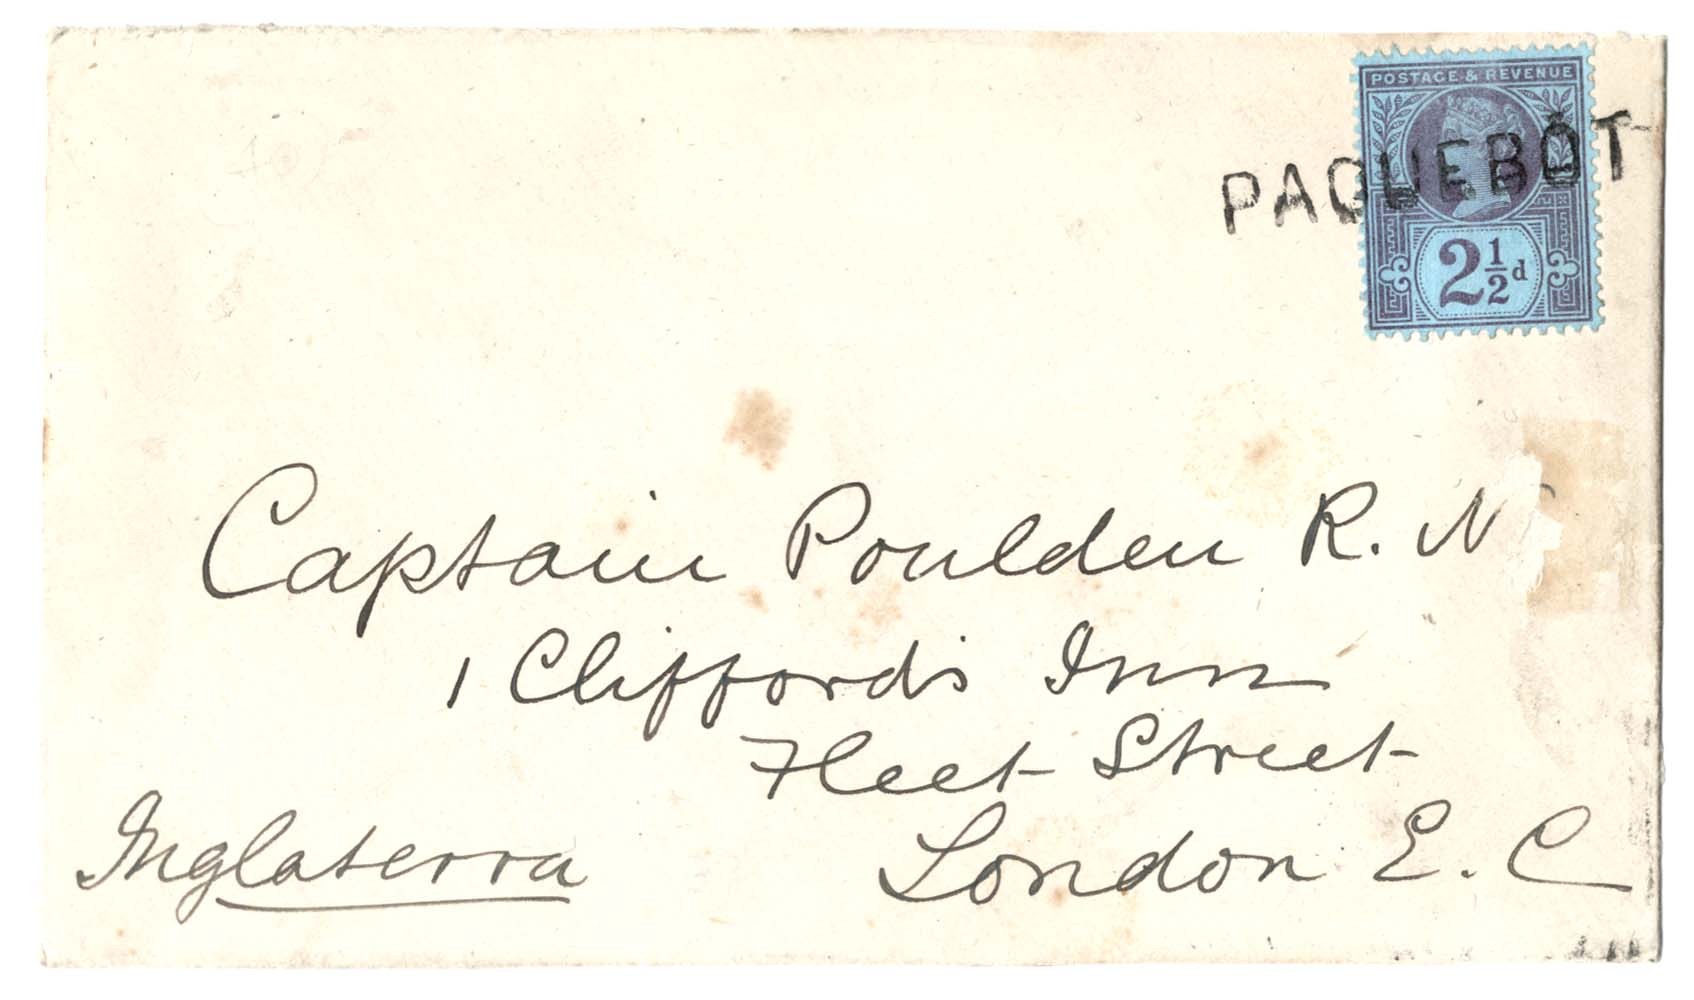 POSTAGE & REVENUE
PAQUEBOT
2½d
Captain Poulden R. N
1 Clifford's Inn
Fleet Street
London E. C
Inglaterra